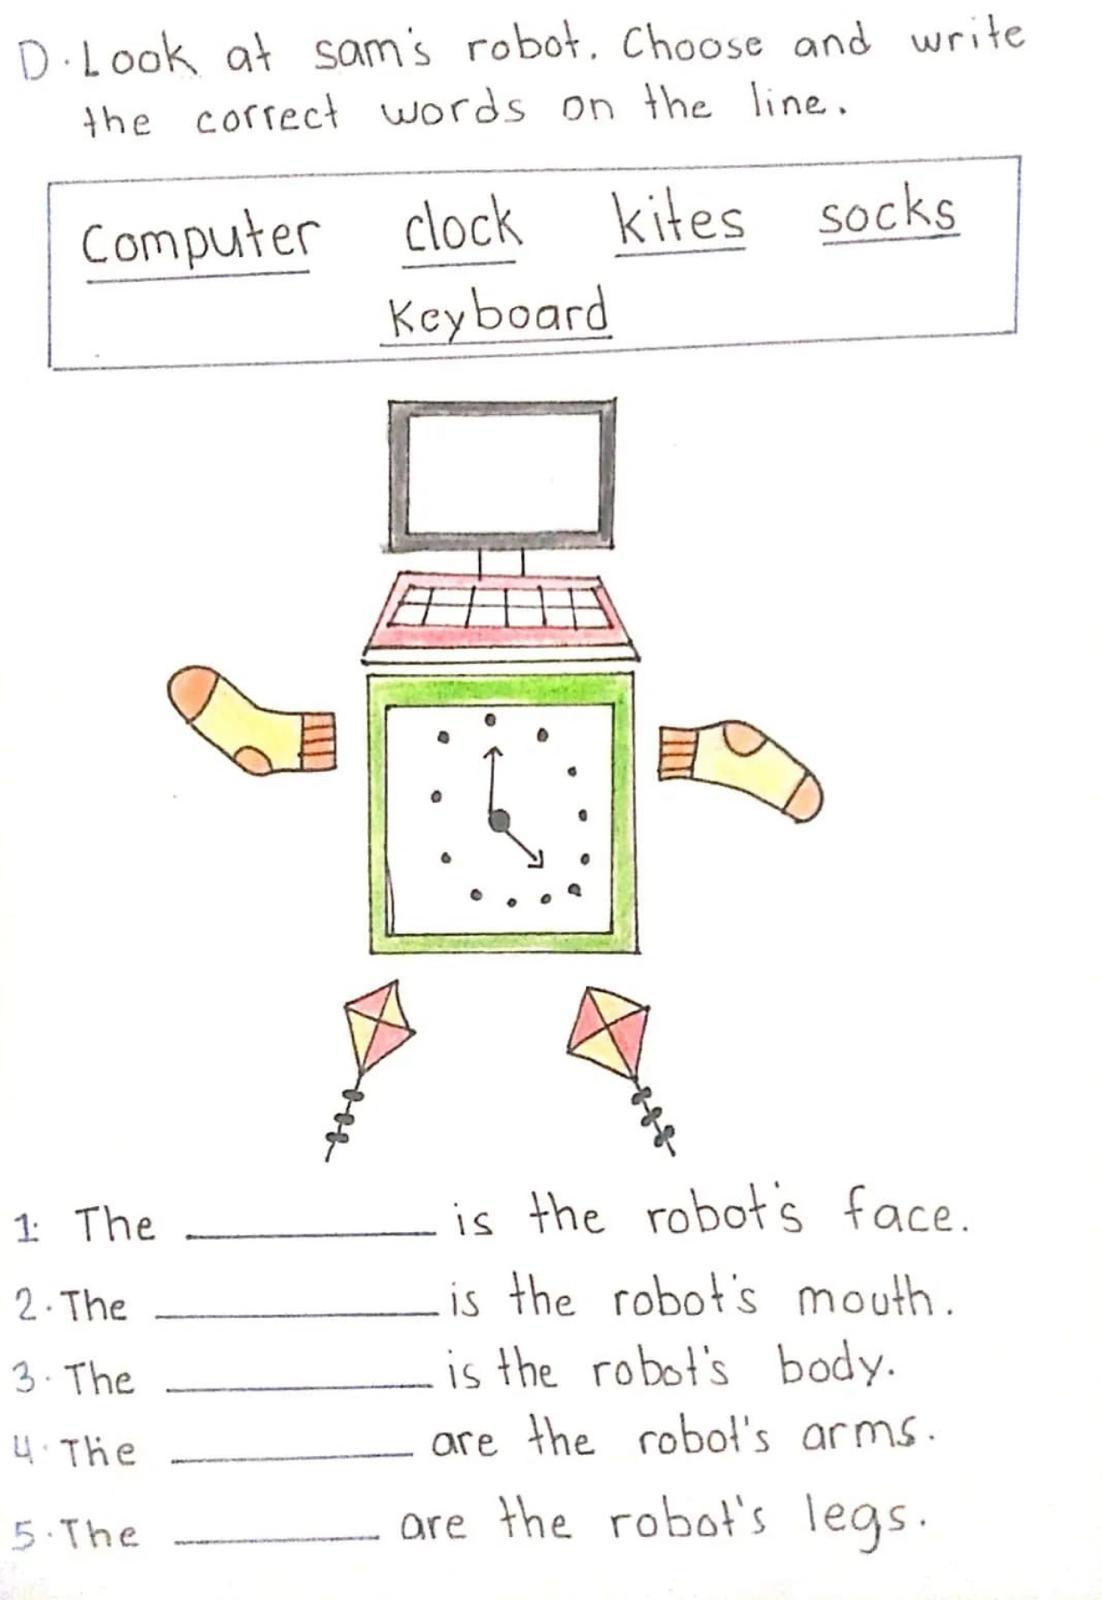 D. Look at sam's robot. Choose and write
the correct words on the line.
Computer clock kites socks
Keyboard
1: The __________ is the robot's face.
2. The __________ is the robot's mouth.
3. The __________ is the robot's body.
4. The __________ are the robot's arms.
5. The __________ are the robot's legs.